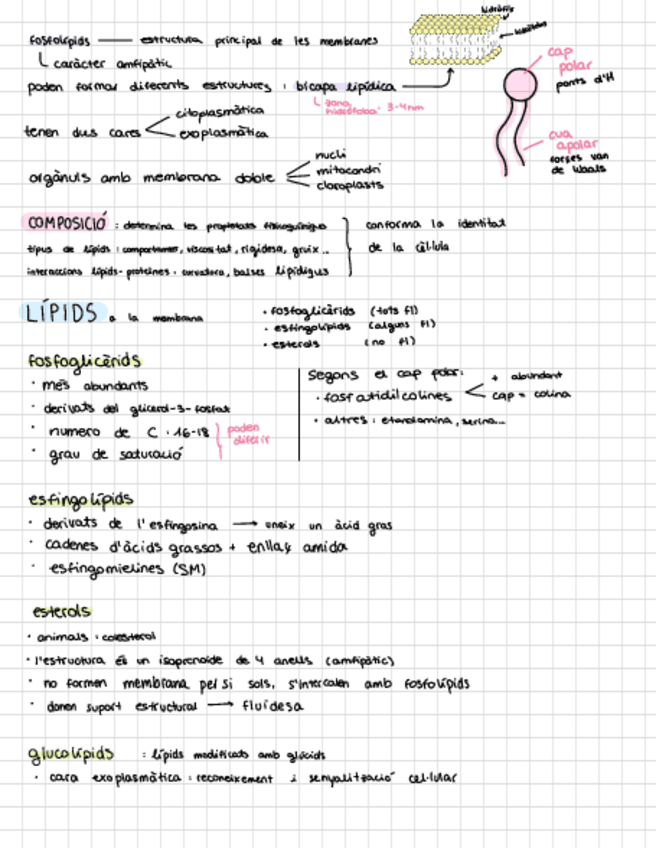 fosfolípids — estructura principal de les membranes
caràcter amfipàtic
poden formar diferents estructures : bicapa lipídica
zona hidròfoba: 3-4nm
tenen dues cares
citoplasmàtica
exoplasmàtica
orgànuls amb membrana doble
nucli
mitocondri
cloroplasts
cap polar
ponts d'H
cua apolar
forces van de Waals
COMPOSICIÓ : determina les propietats fisicoquímiques
tipus de lípids : comportament, viscositat, rigidesa, gruix...
interaccions lípids-proteïnes : curvadura, balses lipídiques
conforma la identitat
de la cèl·lula
LÍPIDS a la membrana
· fosfoglicèrids (tots fl)
· esfingolípids (alguns fl)
· esterols (no fl)
fosfoglicèrids
· més abundants
· derivats del glicerol-3-fosfat
· número de C : 16-18
· grau de saturació
poden diferir
Segons el cap polar:
· fosfatidilcolines
+ abundant
cap = colina
· altres : etanolamina, serina...
esfingolípids
· derivats de l'esfingosina → uneix un àcid gras
· cadenes d'àcids grassos + enllaç amida
· esfingomielines (SM)
esterols
· animals : colesterol
· l'estructura és un isoprenoide de 4 anells (amfipàtic)
· no formen membrana per si sols, s'intercalen amb fosfolípids
· donen suport estructural → fluïdesa
glucolípids : lípids modificats amb glúcids
· cara exoplasmàtica : reconeixement i senyalització cel·lular